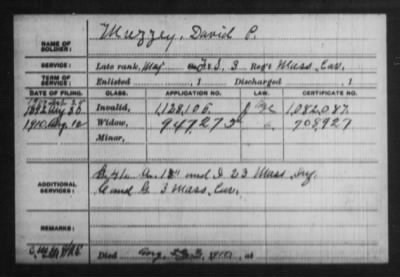 NAME OF SOLDIER: Muzzey, David P.
SERVICE: Late rank, Maj F&S. 3 Reg't Mass. Cav.
TERM OF SERVICE: Enlisted , 1 Discharged , 1
DATE OF FILING. CLASS. APPLICATION NO. LAW. CERTIFICATE NO.
1892 Aug 30 Invalid, 1,128,106 1,082,087
1910 Aug 12 Widow, 947,273 708,927
Minor,
ADDITIONAL SERVICES: and D 23 Mass Inf.
G 3 Mass. Cav.
REMARKS:
Died Aug , 1910, at